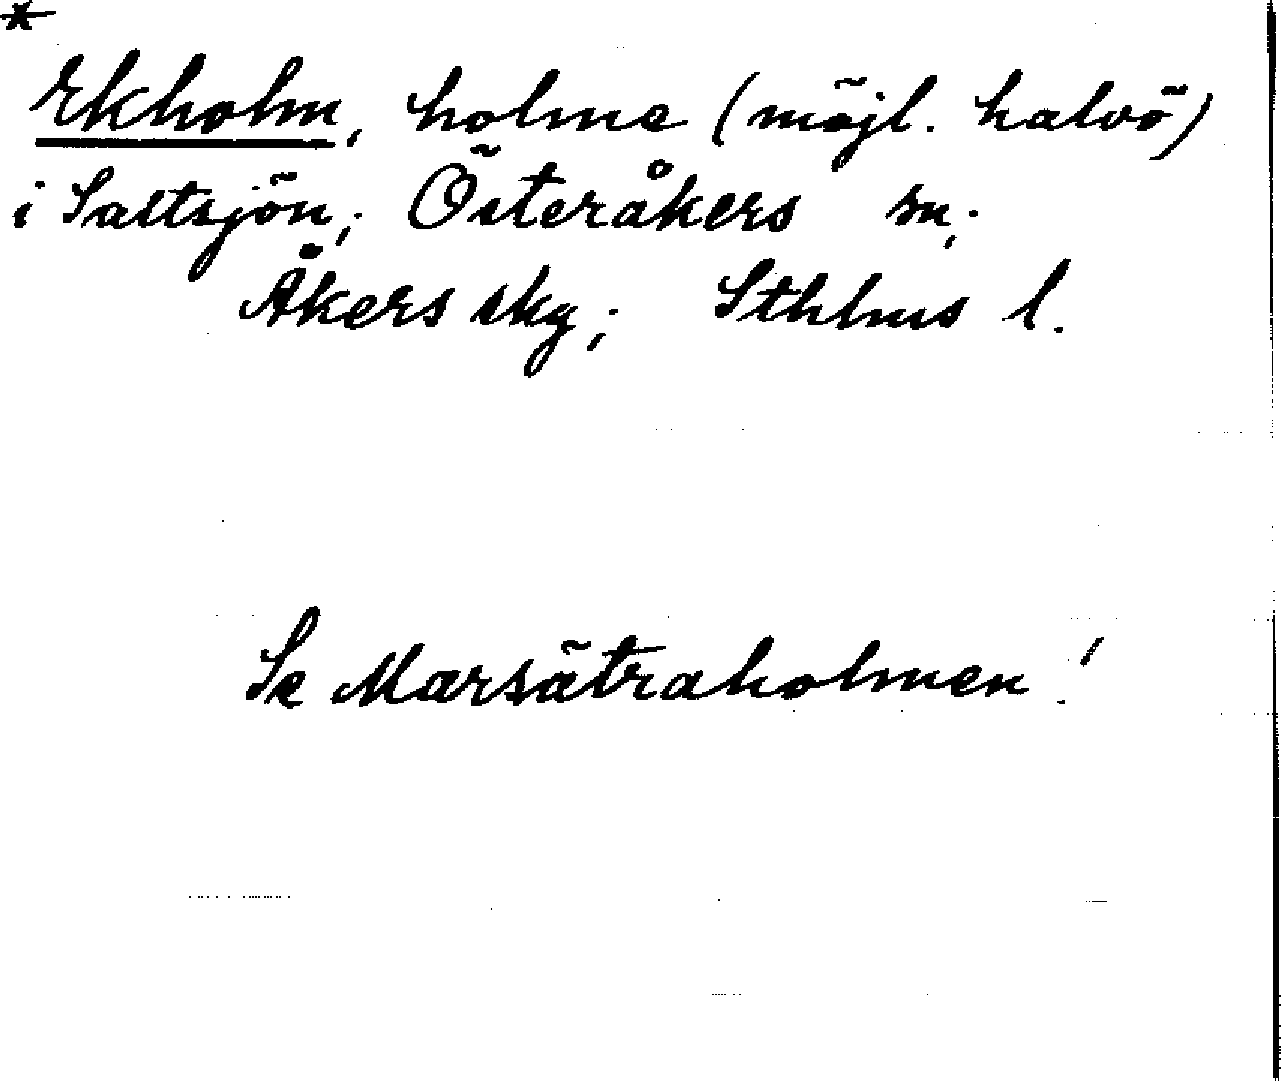 *
Ekholm, holme (möjl. halvö)
i Saltsjön; Österåkers sn;
Åkers skg; Sthlms l.
Se Marsätraholmen!